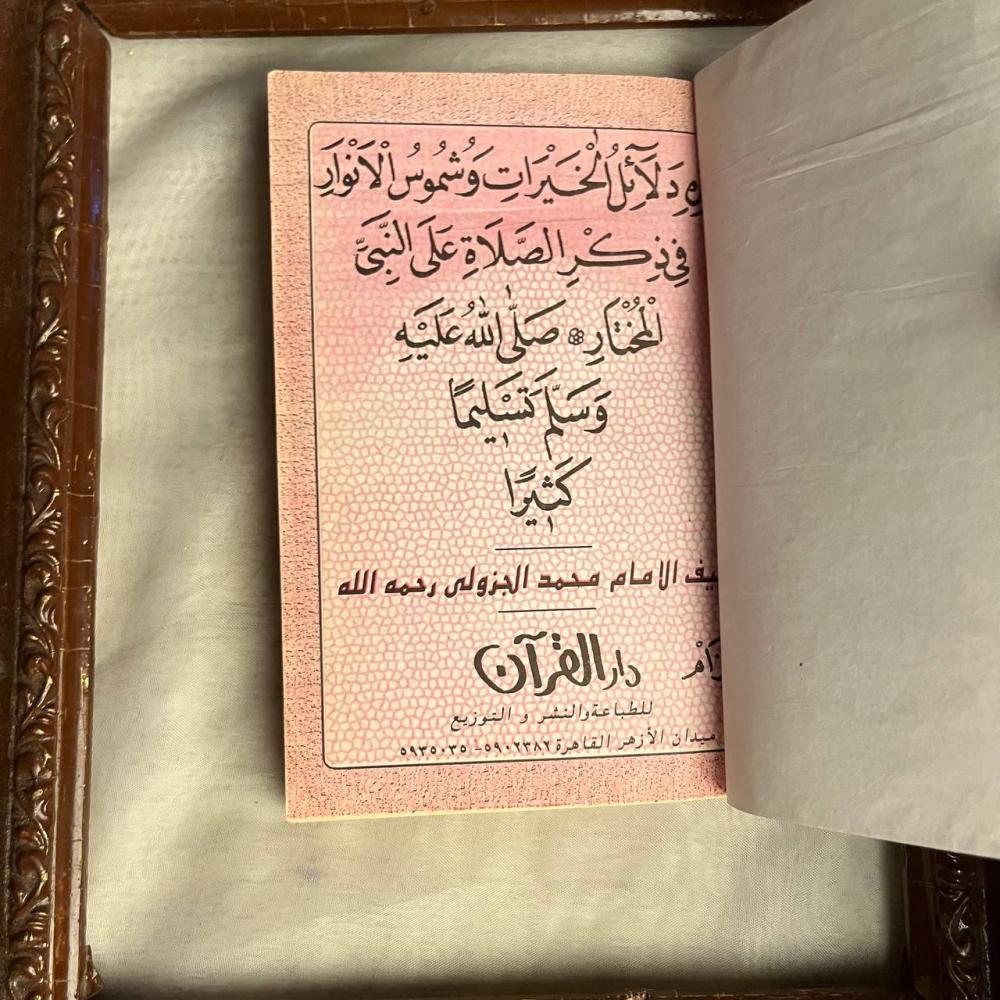 دَلَآئِلُ الْخَيْرَاتِ وَشُمُوسُ الْاَنْوَارِ
فِي ذِكْرِ الصَّلَاةِ عَلَى النَّبِيِّ
الْمُخْتَارِ * صَلَّى اللهُ عَلَيْهِ
وَسَلَّمَ تَسْلِيمًا
كَثِيرًا
الامام محمد الجزولى رحمه الله
دار القرآن
للطباعة والنشر و التوزيع
ميدان الأزهر القاهرة ٥٩٠٢٣٨٢ - ٥٩٣٥٠٣٥